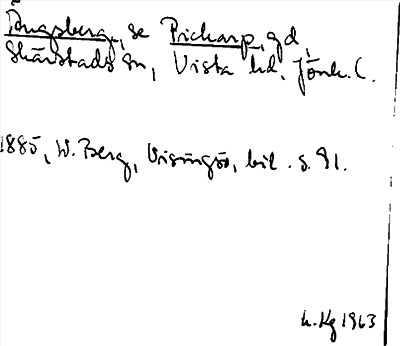 Ängsberg, se Prickarp, gd,
Skärstads sn, Vista hd, Jönk. l.
1885, W. Berg, Visingsö, bil. s. 91.
h. Kg 1963